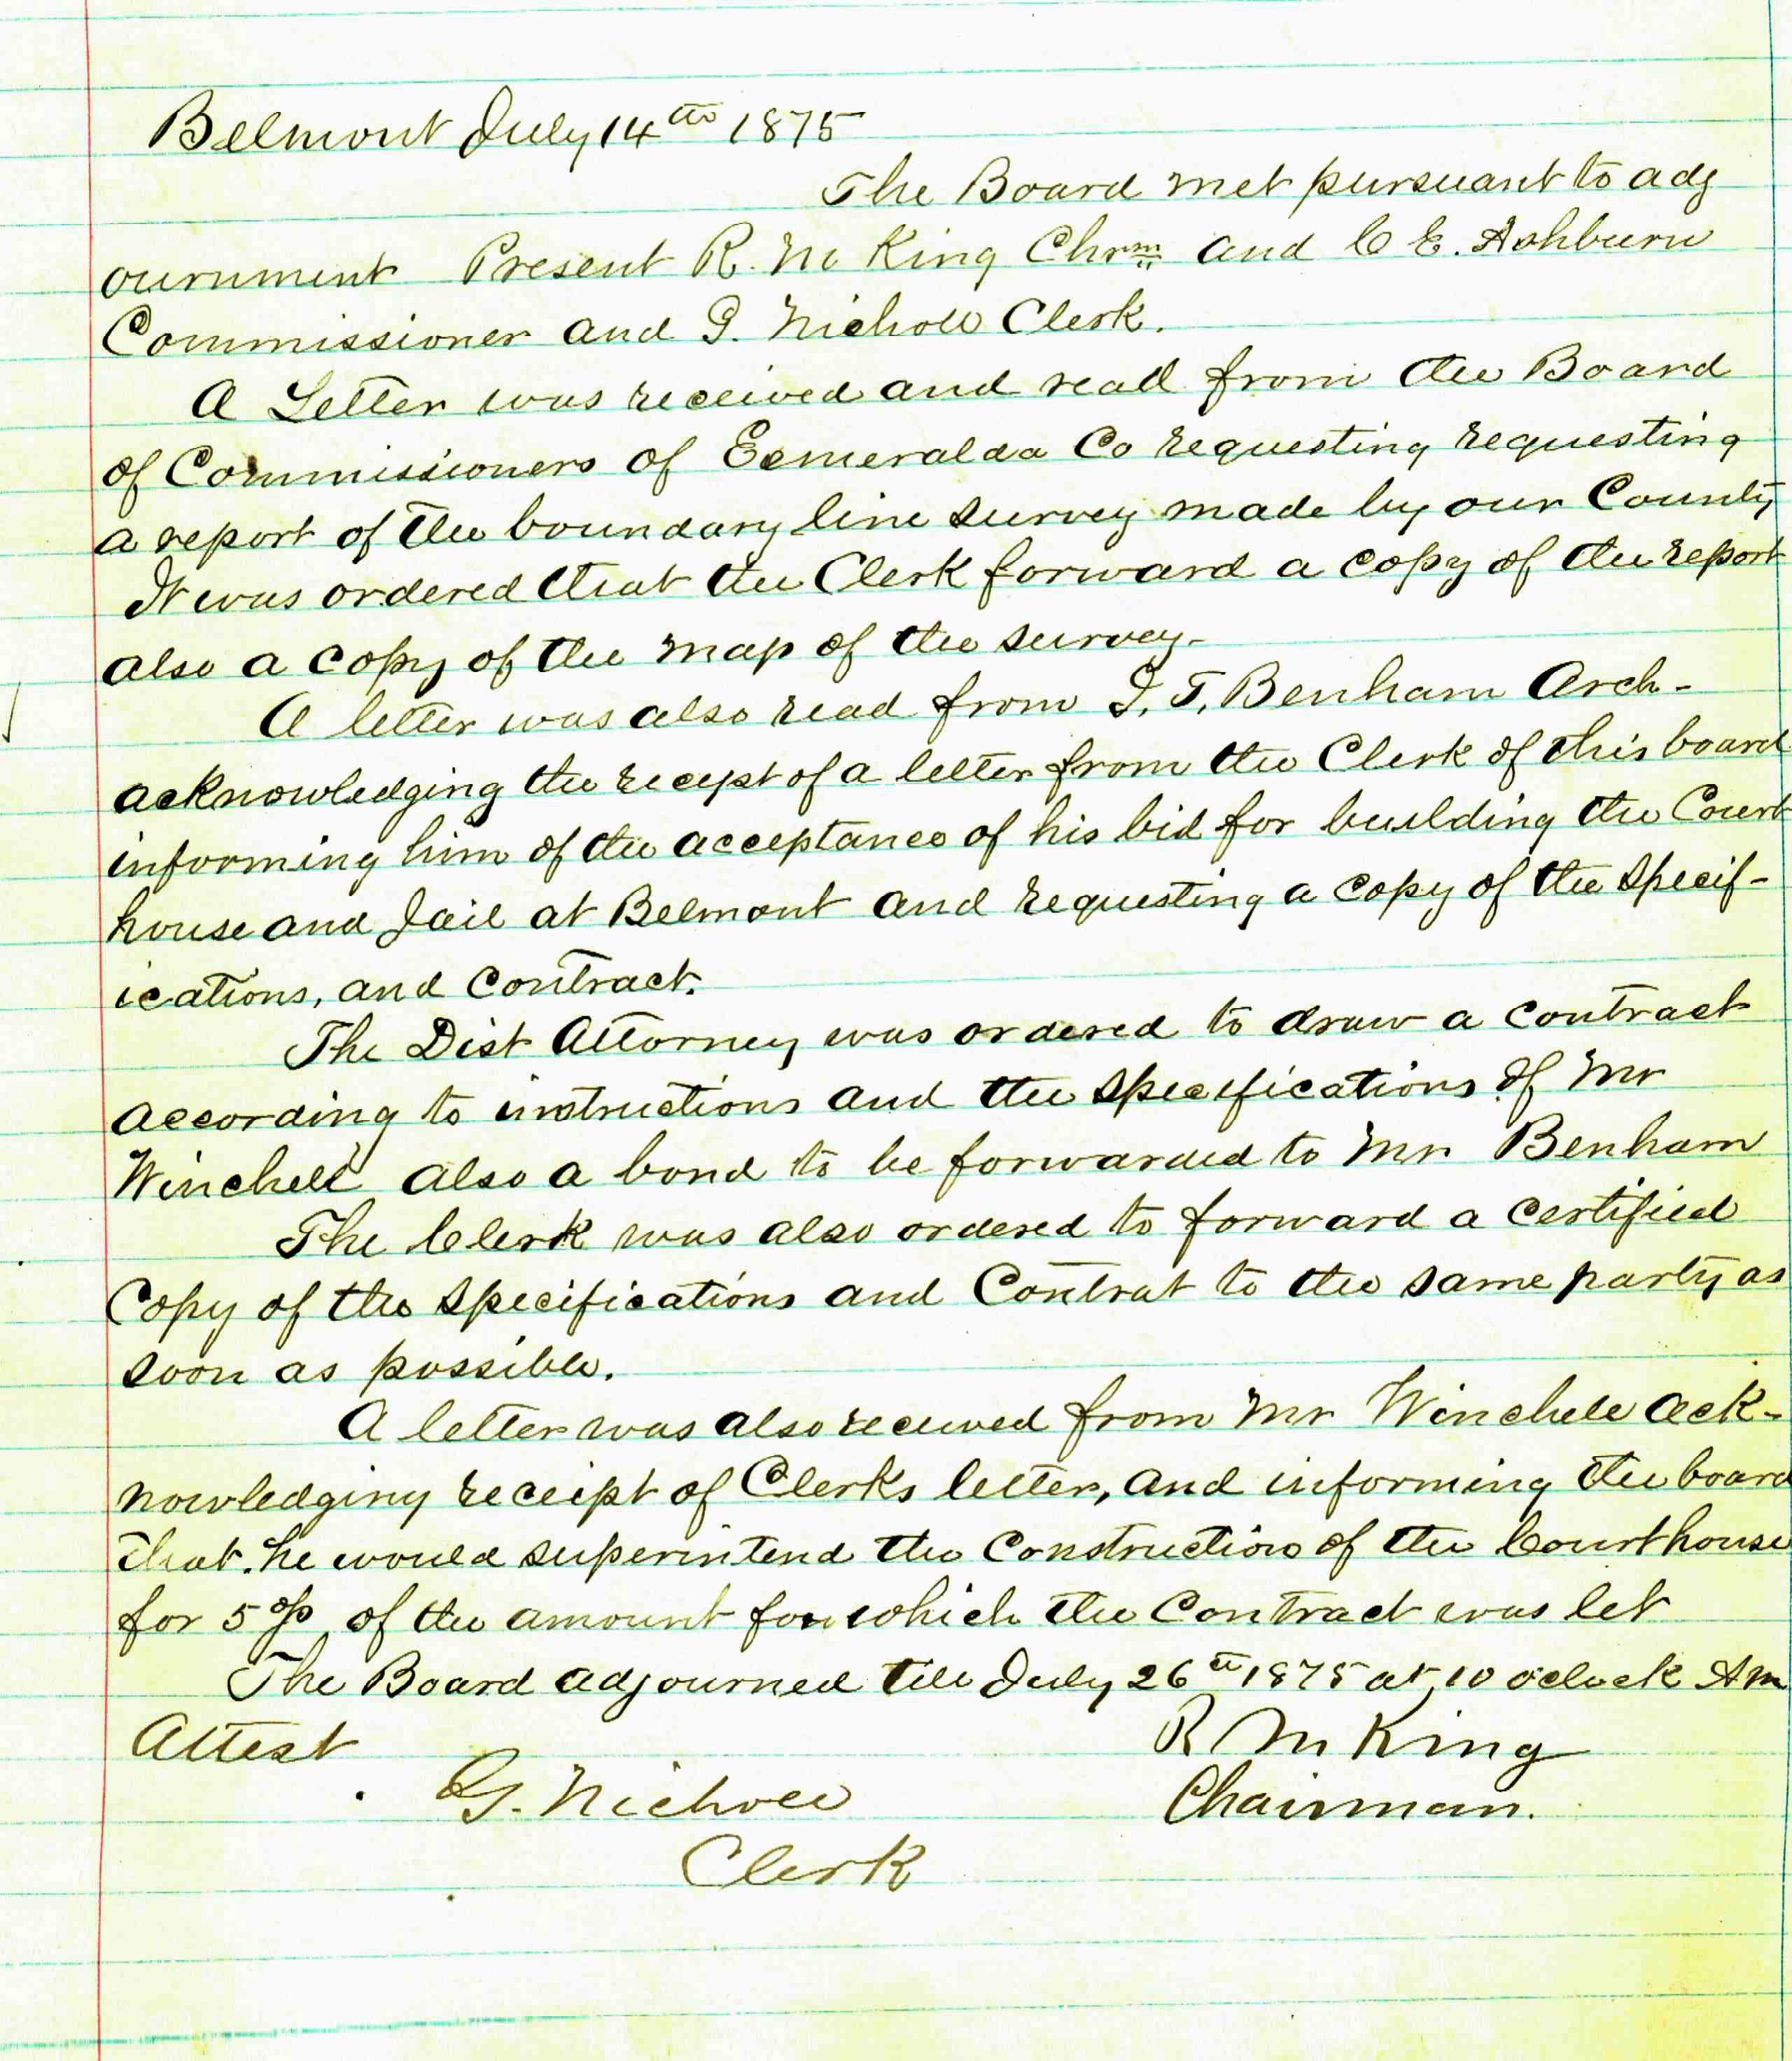 Belmont July 14th 1875
The Board met pursuant to adj
ournment Present R. M King Chrm and C E. Ashburn
Commissioner and G. Nicholl Clerk.
A Letter was received and read from the Board
of Commissioners of Esmeralda Co requesting requesting
a report of the boundary line survey made by our County
It was ordered that the Clerk forward a copy of the report
also a copy of the map of the survey.
A letter was also read from J. T. Benham Arch-
acknowledging the receipt of a letter from the Clerk of this board
informing him of the acceptance of his bid for building the Court
house and Jail at Belmont and requesting a copy of the Specif-
ications, and Contract.
The Dist Attorney was ordered to draw a contract
according to instructions and the specifications of Mr
Winchell also a bond to be forwarded to Mr. Benham
The Clerk was also ordered to forward a certified
Copy of the Specifications and Contrat to the same party as
soon as possible.
A letter was also received from Mr Winchell ack-
nowledging receipt of Clerks letter, and informing the board
that he would superintend the Construction of the Courthouse
for 5 % of the amount for which the Contract was let
The Board adjourned till July 26th 1875 at 10 oclock AM
Attest R M King
G. Nicholl Chairman.
Clerk